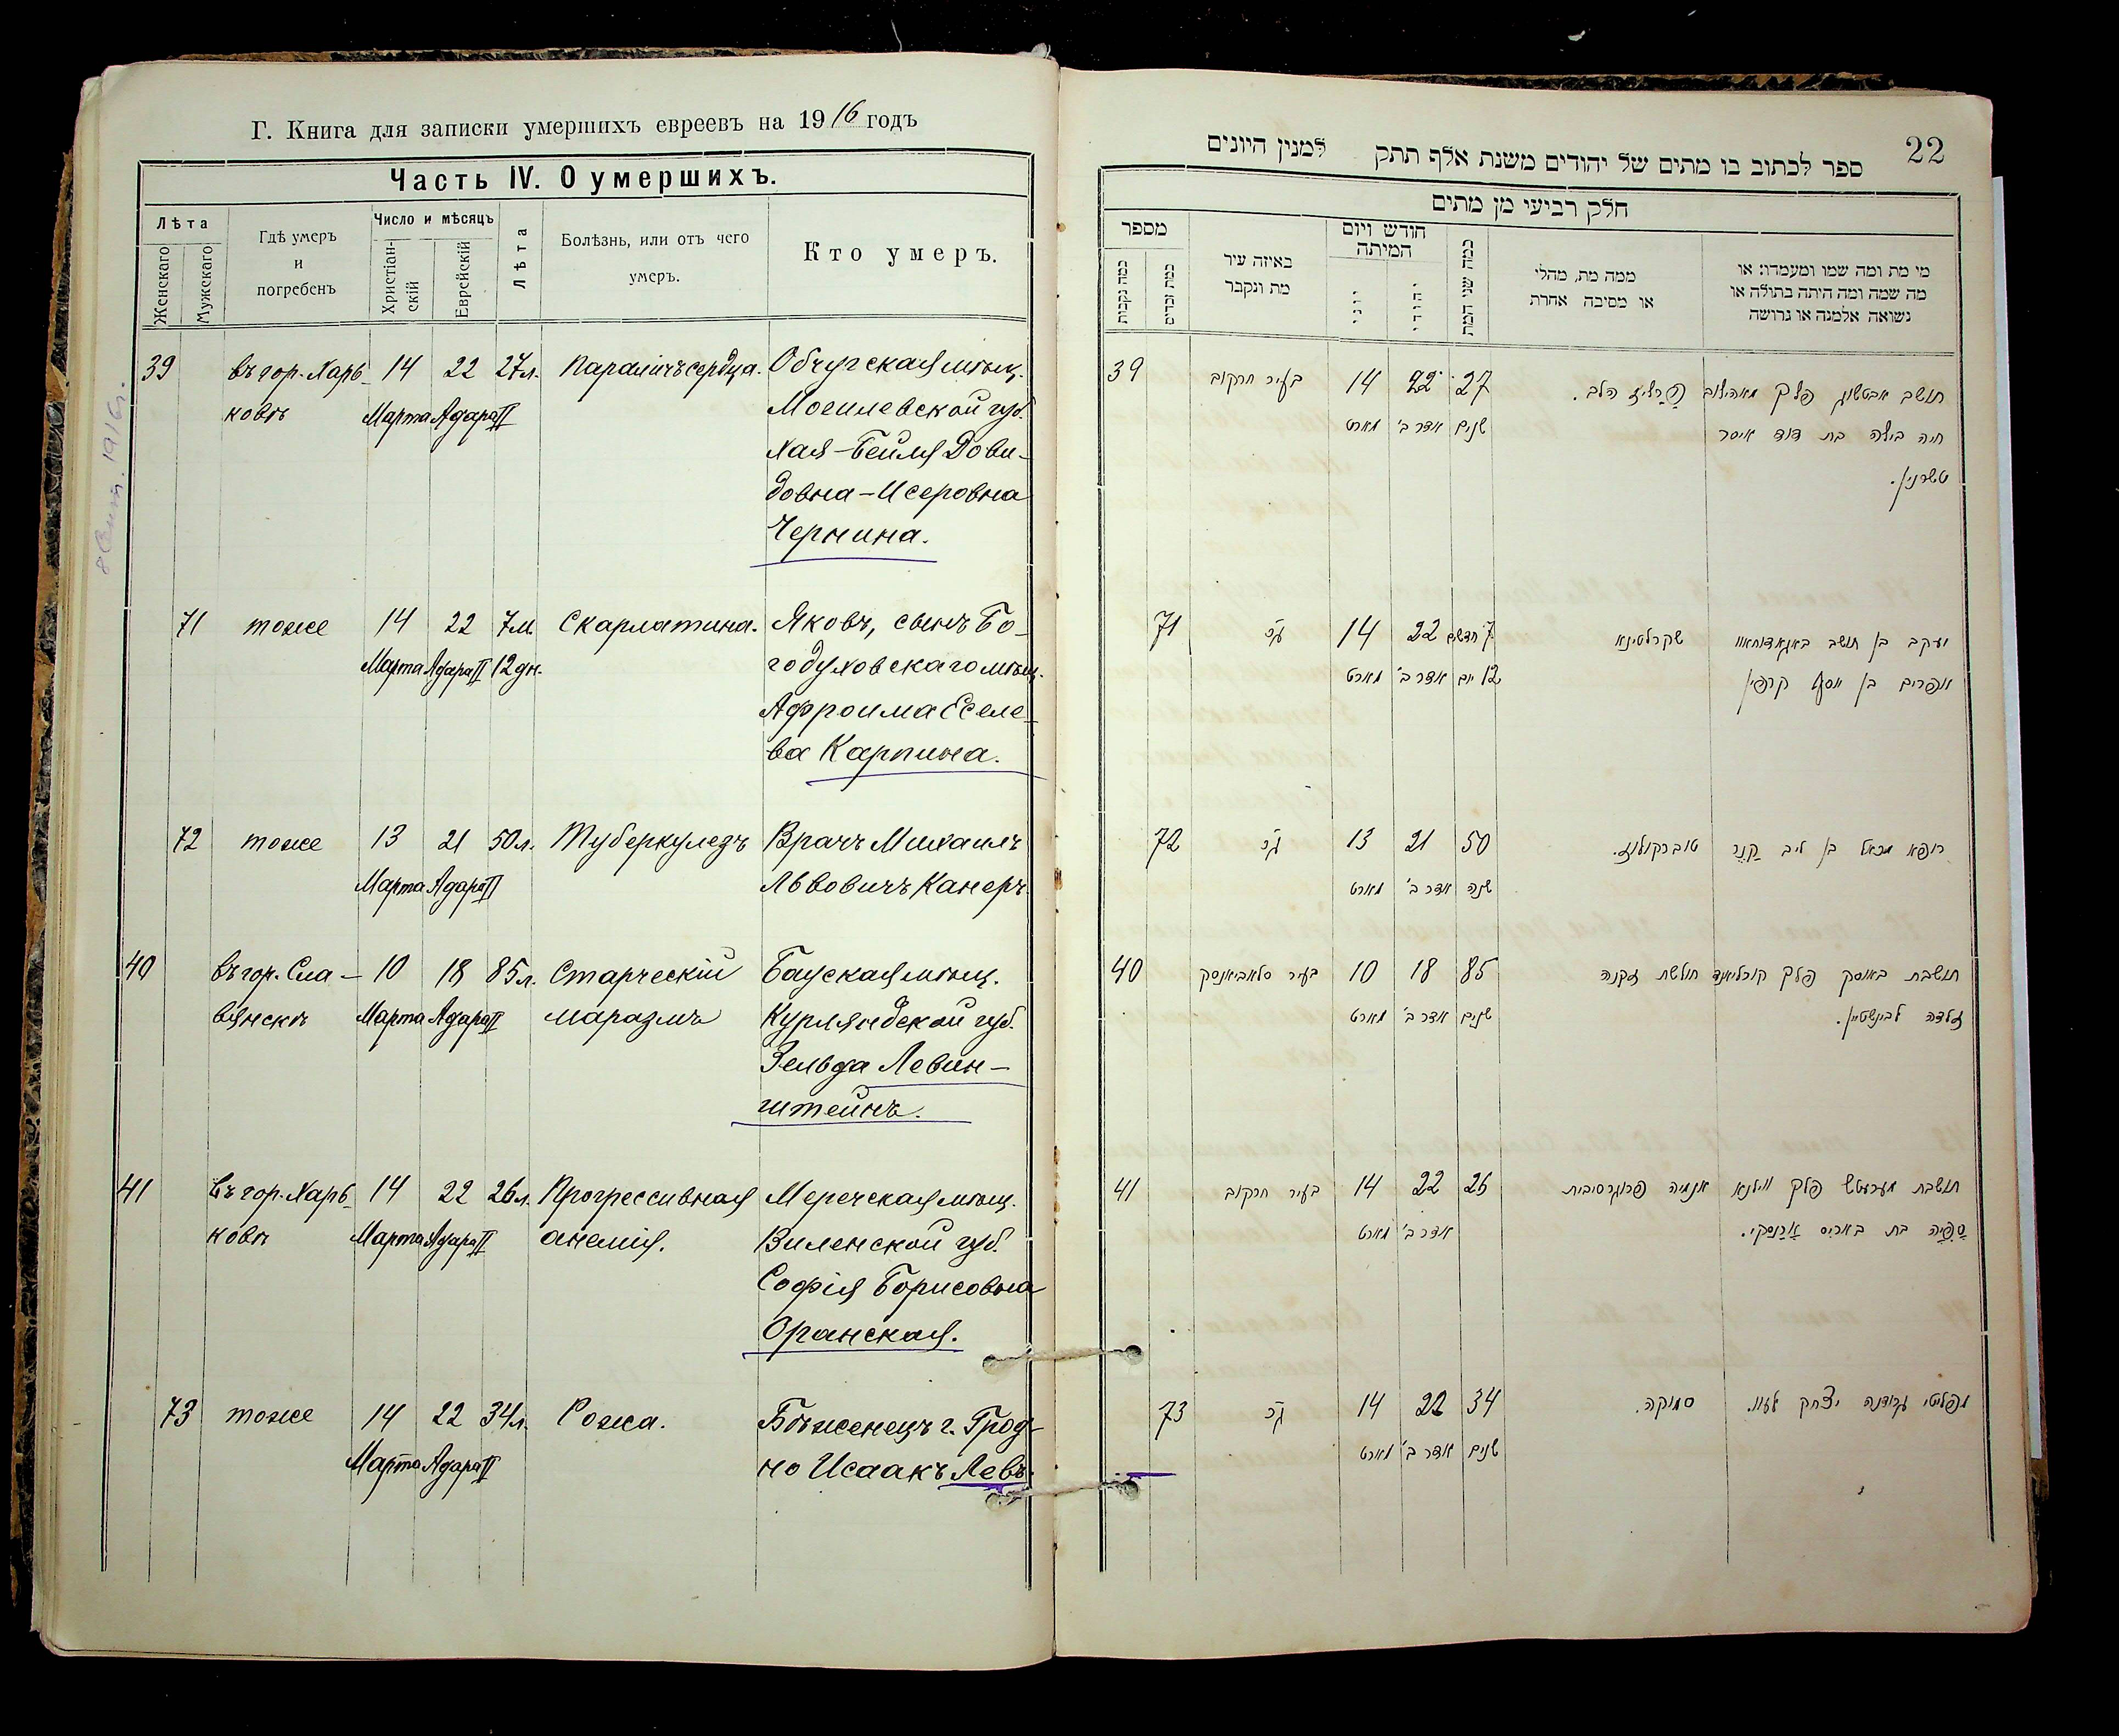 Г. Книга для записки умершихъ евреевъ на 1916 годъ
Часть IV. О умершихъ.
Лѣта
Женскаго
Мужескаго
Гдѣ умеръ
и
погребенъ
Число и мѣсяцъ
Христіан-
скій
Еврейскій
Лѣта
Болѣзнь, или отъ чего
умеръ.
Кто умеръ.
39 въ гор. Харь- 14 22 27 л. Параличъ сердца. Обчугская мѣщ.
ковѣ Марта Адара II Могилевской губ.
Хая-Бейля Дови-
довна-Исеровна
Чернина.
71 тоже 14 22 7 м. Скарлатина. Яковъ, сынъ Бо-
Марта Адара II 12 дн. годуховскаго мѣщ.
Афроима Еселе-
ва Карпина.
72 тоже 13 21 50 л. Туберкулезъ Врачъ Михаилъ
Марта Адара II Львовичъ Канеръ.
40 въ гор. Сла- 10 18 85 л. Старческій Бауская мѣщ.
вянскѣ Марта Адара II маразмъ Курляндской губ.
Зельда Левин-
штейнъ.
41 въ гор. Харь- 14 22 26 л. Прогрессивная Меречская мѣщ.
ковѣ Марта Адара II анемія. Виленской губ.
Софія Борисовна
Оранская.
73 тоже 14 22 34 л. Рожа. Бѣженецъ г. Грод-
Марта Адара II но Исаакъ Левъ.
22
ספר לכתוב בו מתים של יהודים משנת אלף תתק למנין היונים
חלק רביעי מן מתים
מספר
כמה נקבות
כמה זכרים
באיזה עיר
מת ונקבר
חודש ויום
המיתה
יוני
יהודי
כמה שני המת
ממה מת, מחלי
או מסיבה אחרת
מי מת ומה שמו ומעמדו: או
מה שמה ומה היתה בתולה או
נשואה אלמנה או גרושה
39 בעיר חרקוב 14 22 27 הלב.
מארט אדר ב' שנים חיה ביילה בת דוד איסר
טשרנין.
71 14 22 7 חדשים שקרלטינא יעקב בן תושב
מארט אדר ב' 12 יום אפרים בן יוסף קרפין
72 13 21 50 טוברקולוז. רופא מכאל בן ליב קַנֶר
מארט אדר ב' שנה
40 בעיר סלאביאנסק 10 18 85 חולשת זקנה תושבת באוסק פלך קורליאנד
מארט אדר ב' שנים זלדה לבינשטיין.
41 בעיר חרקוב 14 22 26 אנמיה פרוגרסיבית תושבת מערעטש פלך ווילנא
מארט אדר ב' סָפִיָה בת באריס אָרַנסקי.
73 14 22 34 סמוקה. מפליטי גרודנה יצחק לעוו.
מארט אדר ב' שנים